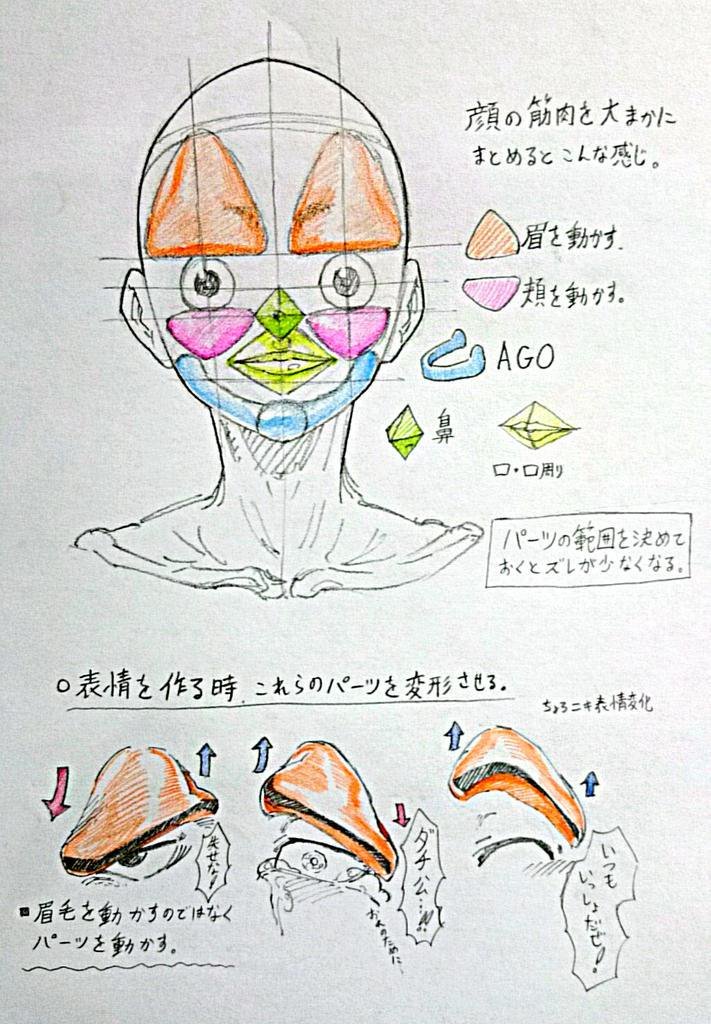 顔の筋肉を大まかに
まとめるとこんな感じ。
眉を動かす.
頬を動かす。
AGO
鼻
口・口周り
パーツの範囲を決めて
おくとズレが少なくなる。
○表情を作る時、これらのパーツを変形させる。
ちょろニキ表情変化
失せな!
ダチ公…!!
おれのために…
いつも
いっしょだぜ!
眉毛を動かすのではなく
パーツを動かす。